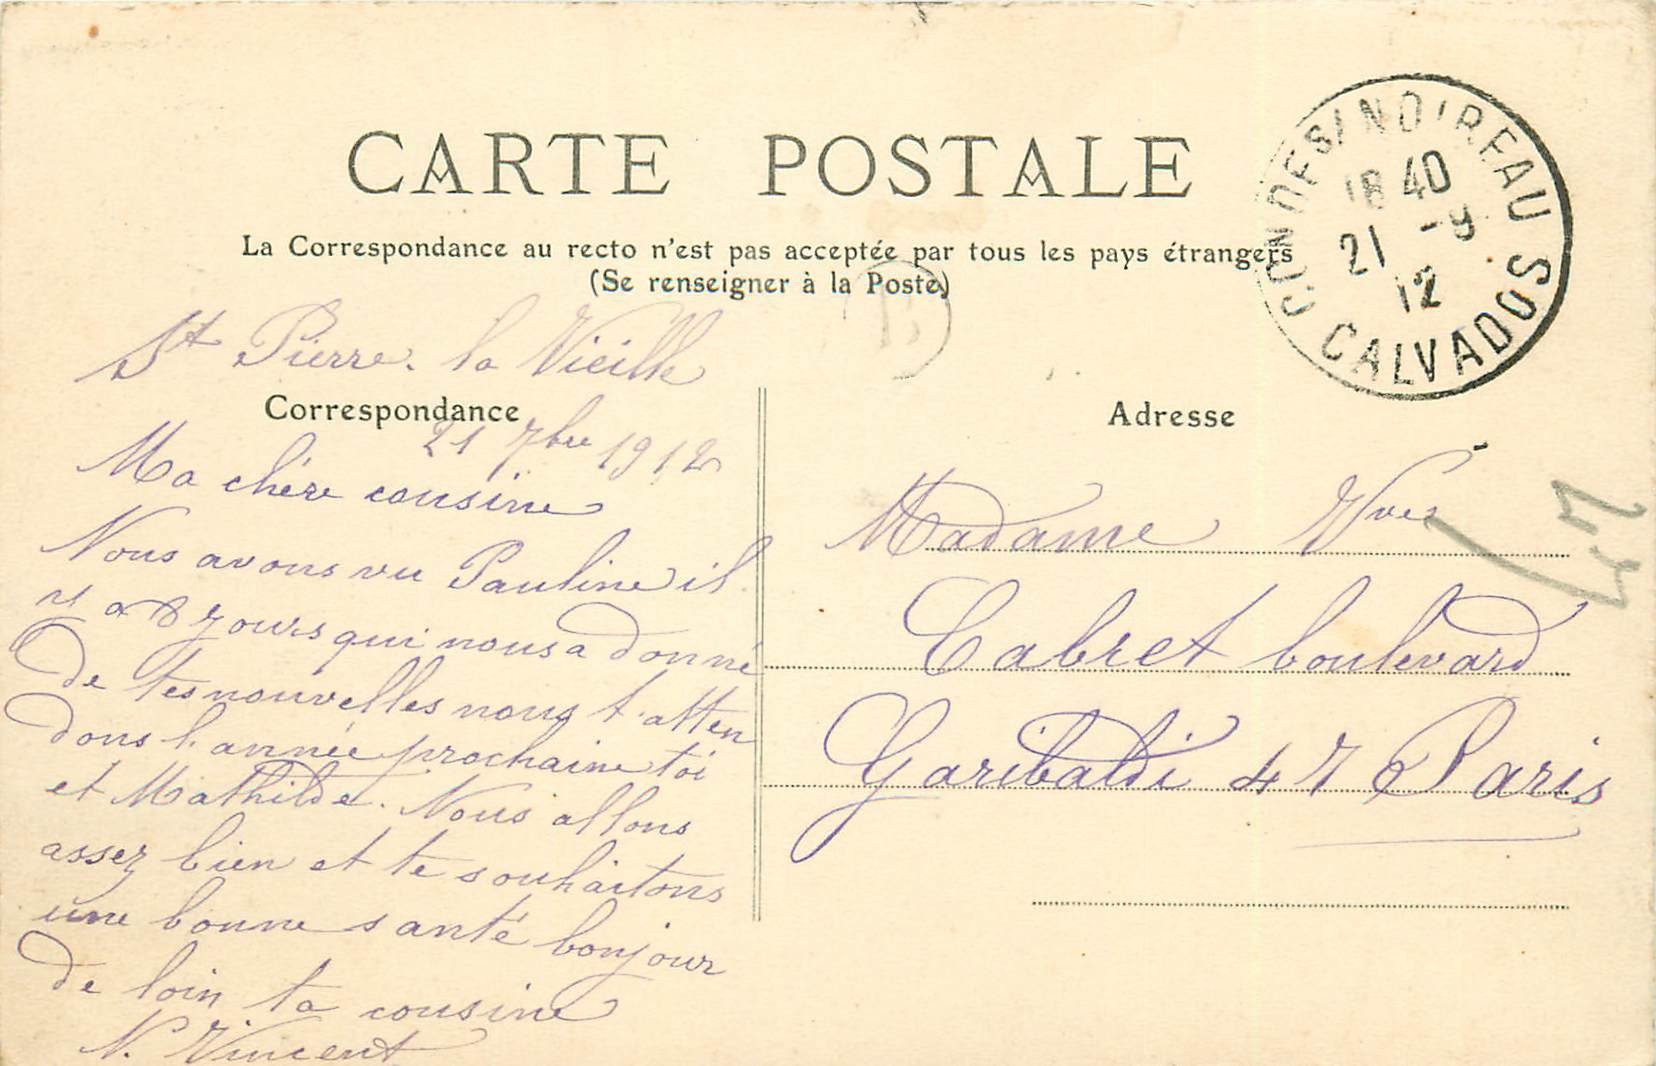 CARTE POSTALE
La Correspondance au recto n'est pas acceptée par tous les pays étrangers
(Se renseigner à la Poste)
CONDE S/ NOIREAU
18 40
21 -9
12
CALVADOS
St Pierre la Vieille
Correspondance
21 7bre 1912
Ma chère cousine
Nous avons vu Pauline il
y a 8 jours qui nous a donné
de tes nouvelles nous t'atten
dons l'année prochaine toi
et Mathilde. Nous allons
assez bien et te souhaitons
une bonne santé bonjour
de loin ta cousine
N. Vincent
Adresse
Madame Vve
Cabret boulevard
Garibaldi 47 Paris
47